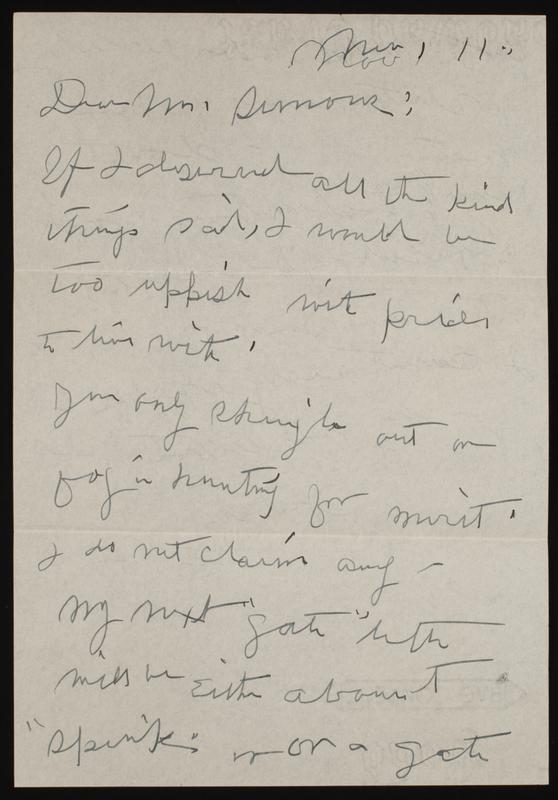 Nov, 11.
Dear Mr. Simons:
If I deserved all the kind
things said, I would be
too uppish with pride
to live with.
You only struggle out on
fog in hunting for merit.
I do not claim any –
My next "gate" letter
will be either about
"Spink" or on a gate